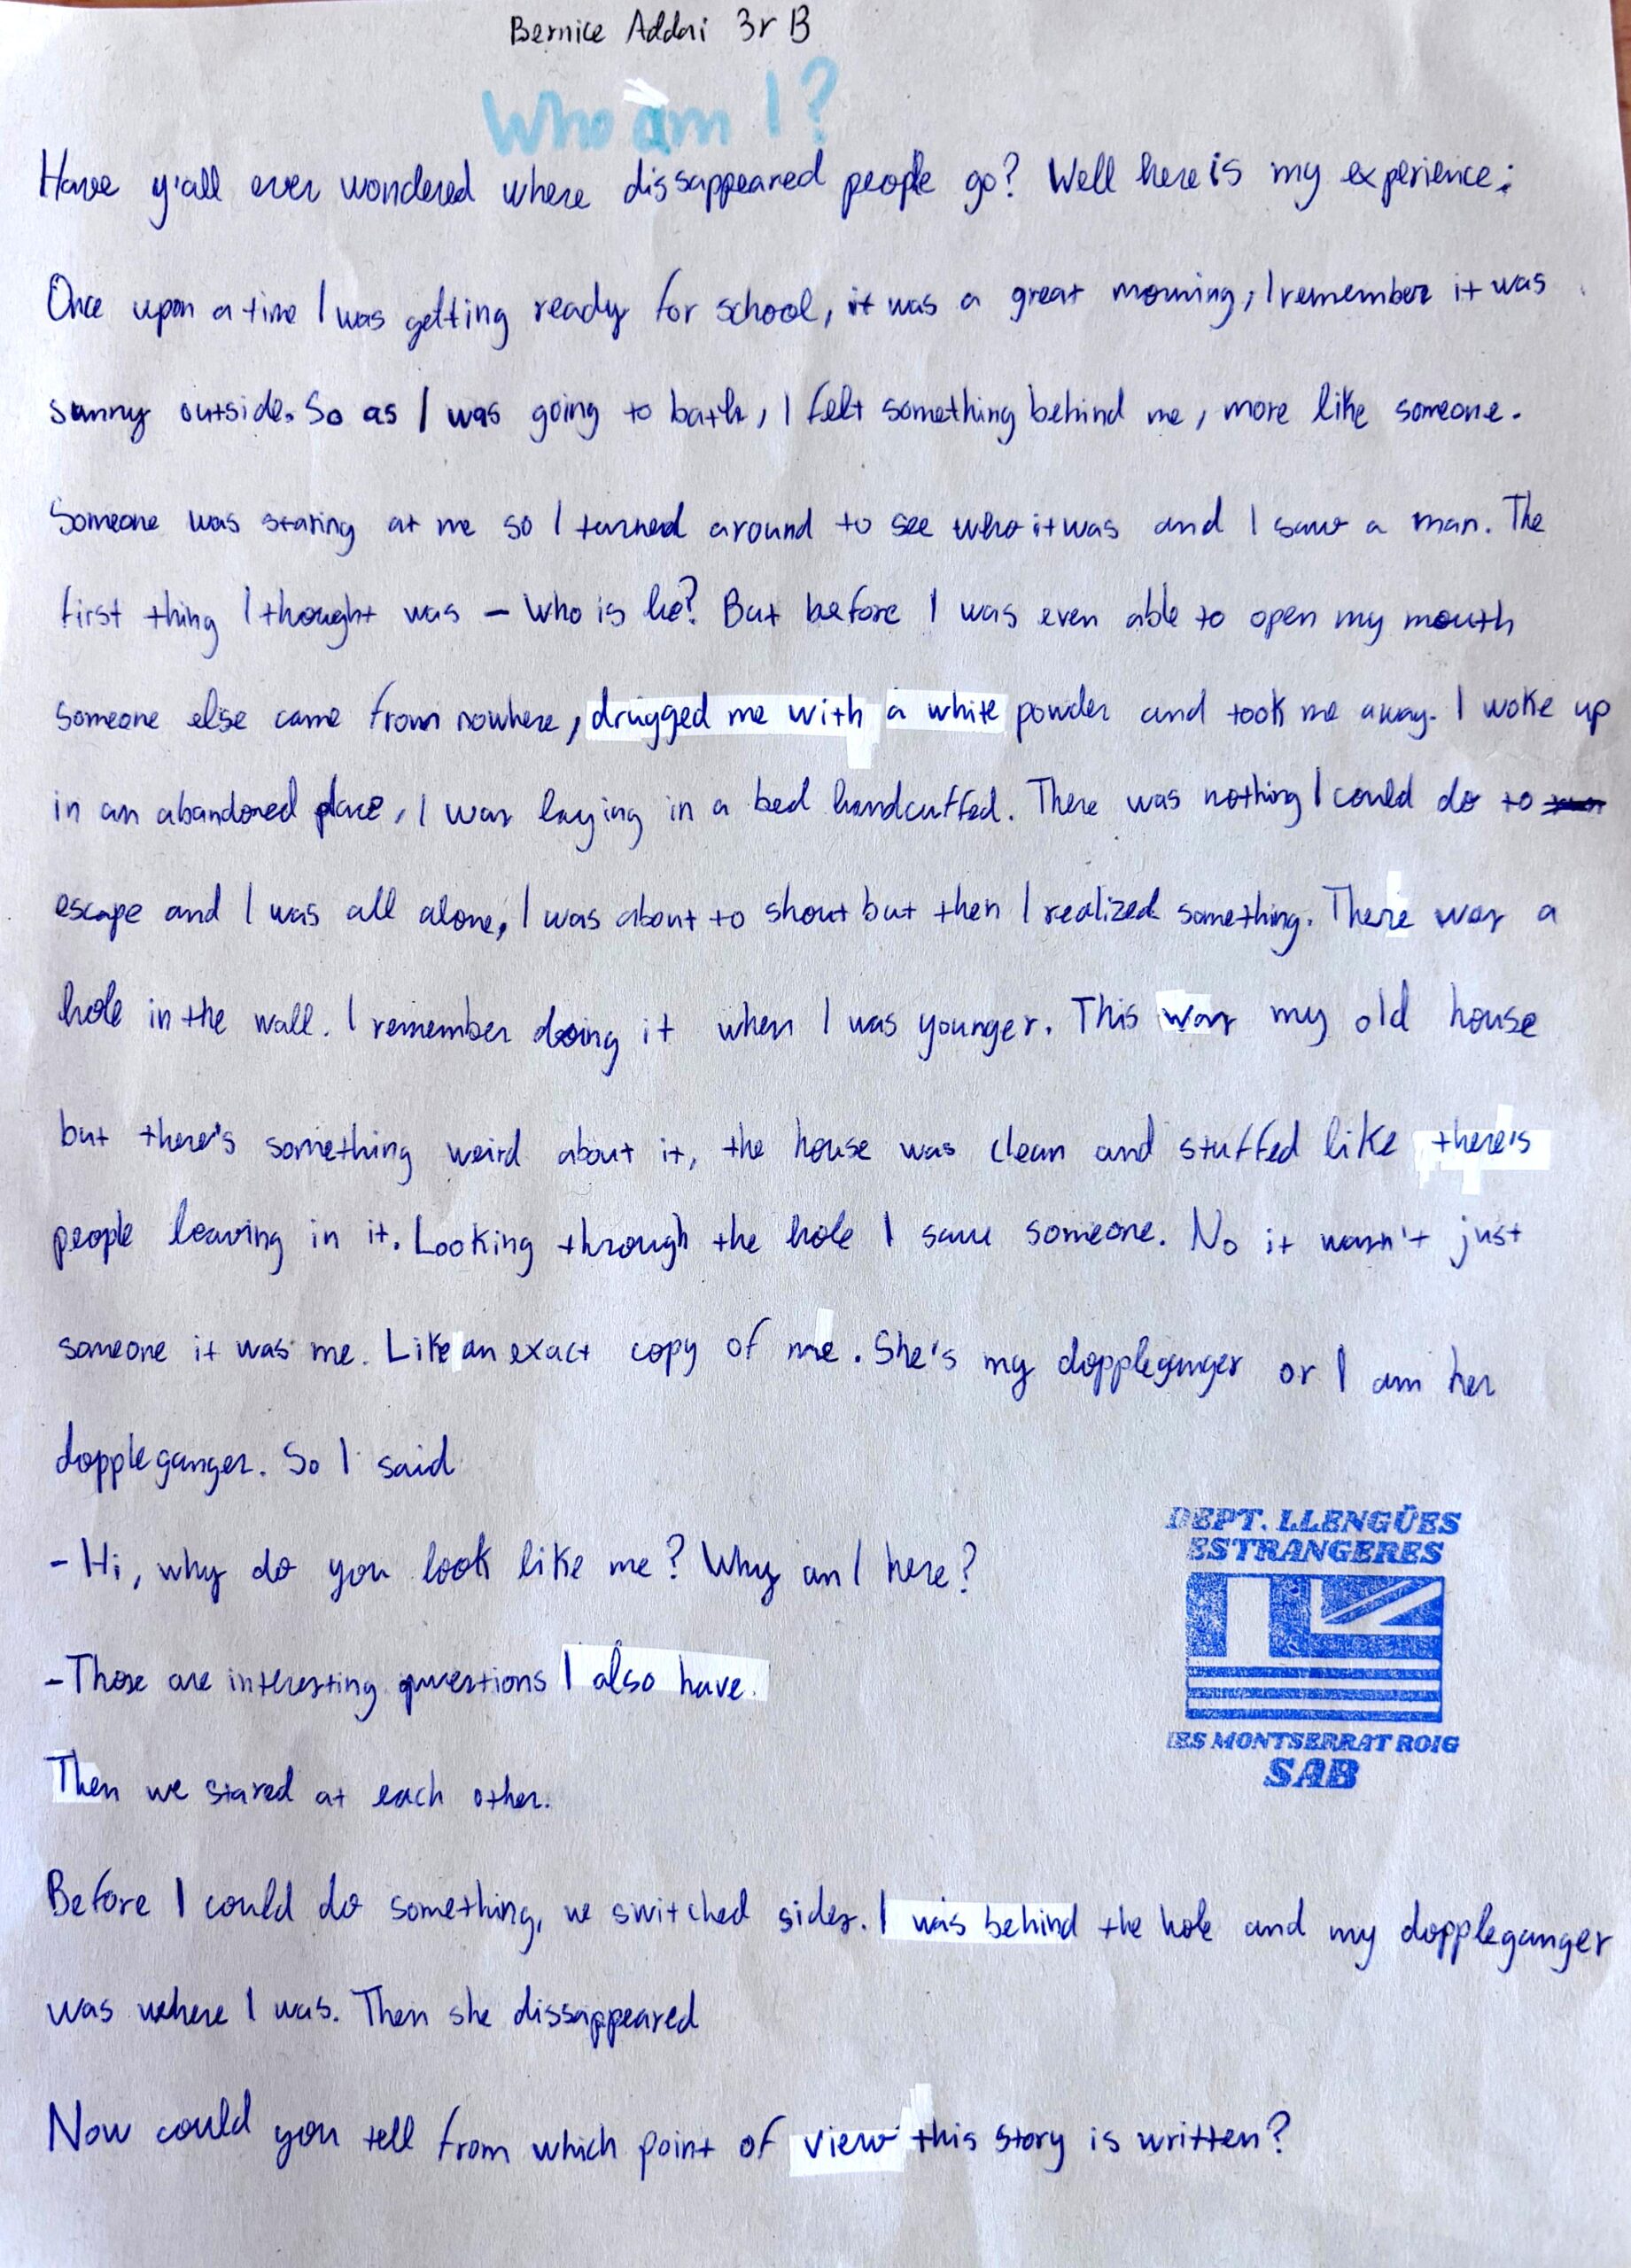 Bernice Addai 3r B
Who am I?
Have y'all ever wondered where dissappeared people go? Well here is my experience:
Once upon a time I was getting ready for school, it was a great morning, I remember it was
sunny outside. So as I was going to bath, I felt something behind me, more like someone.
Someone was staring at me so I turned around to see who it was and I saw a man. The
first thing I thought was - Who is he? But before I was even able to open my mouth
someone else came from nowhere, drugged me with a white powder and took me away. I woke up
in an abandoned place, I was laying in a bed handcuffed. There was nothing I could do to
escape and I was all alone, I was about to shout but then I realized something. There was a
hole in the wall. I remember doing it when I was younger. This was my old house
but there's something weird about it, the house was clean and stuffed like there's
people leaving in it. Looking through the hole I saw someone. No it wasn't just
someone it was me. Like an exact copy of me. She's my doppleganger or I am her
doppleganger. So I said
- Hi, why do you look like me? Why am I here?
- Those are interesting questions I also have.
Then we stared at each other.
Before I could do something, we switched sides. I was behind the hole and my doppleganger
was where I was. Then she dissappeared
Now could you tell from which point of view this story is written?
DEPT. LLENGÜES
ESTRANGERES
IES MONTSERRAT ROIG
SAB